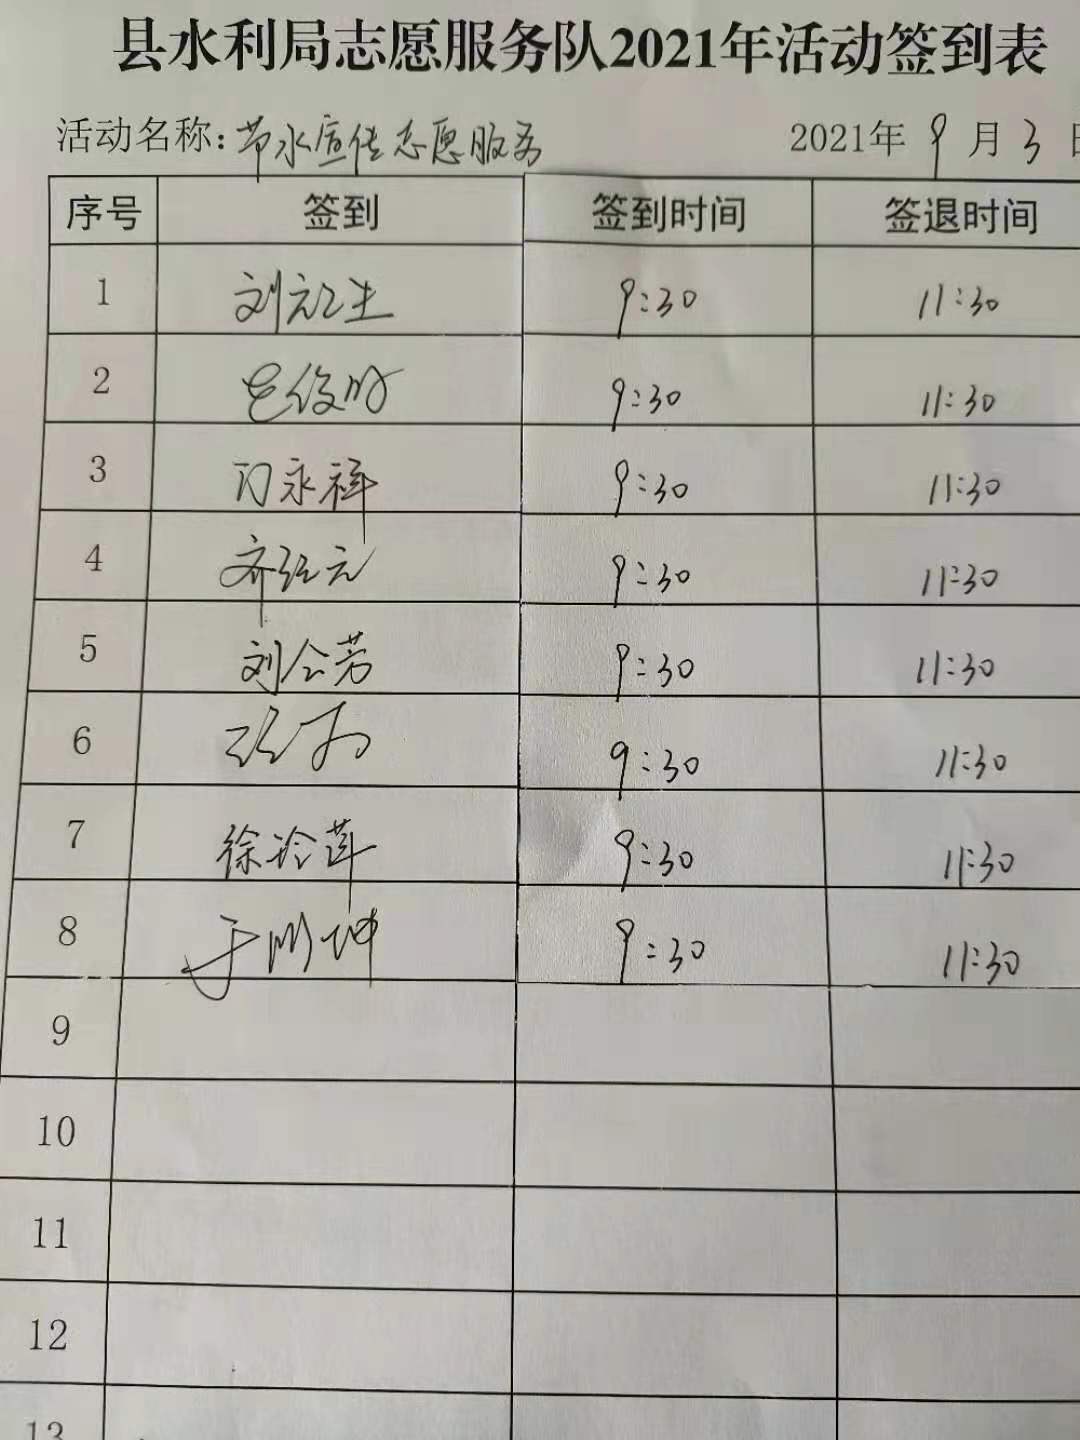 县水利局志愿服务队2021年活动签到表
活动名称:节水宣传志愿服务 2021年9月3日
序号 签到 签到时间 签退时间
1 刘元生 9:30 11:30
2 9:30 11:30
3 刁永祥 9:30 11:30
4 齐红元 9:30 11:30
5 刘会芳 9:30 11:30
6 9:30 11:30
7 徐玲莲 9:30 11:30
8 于明坤 9:30 11:30
9
10
11
12
13